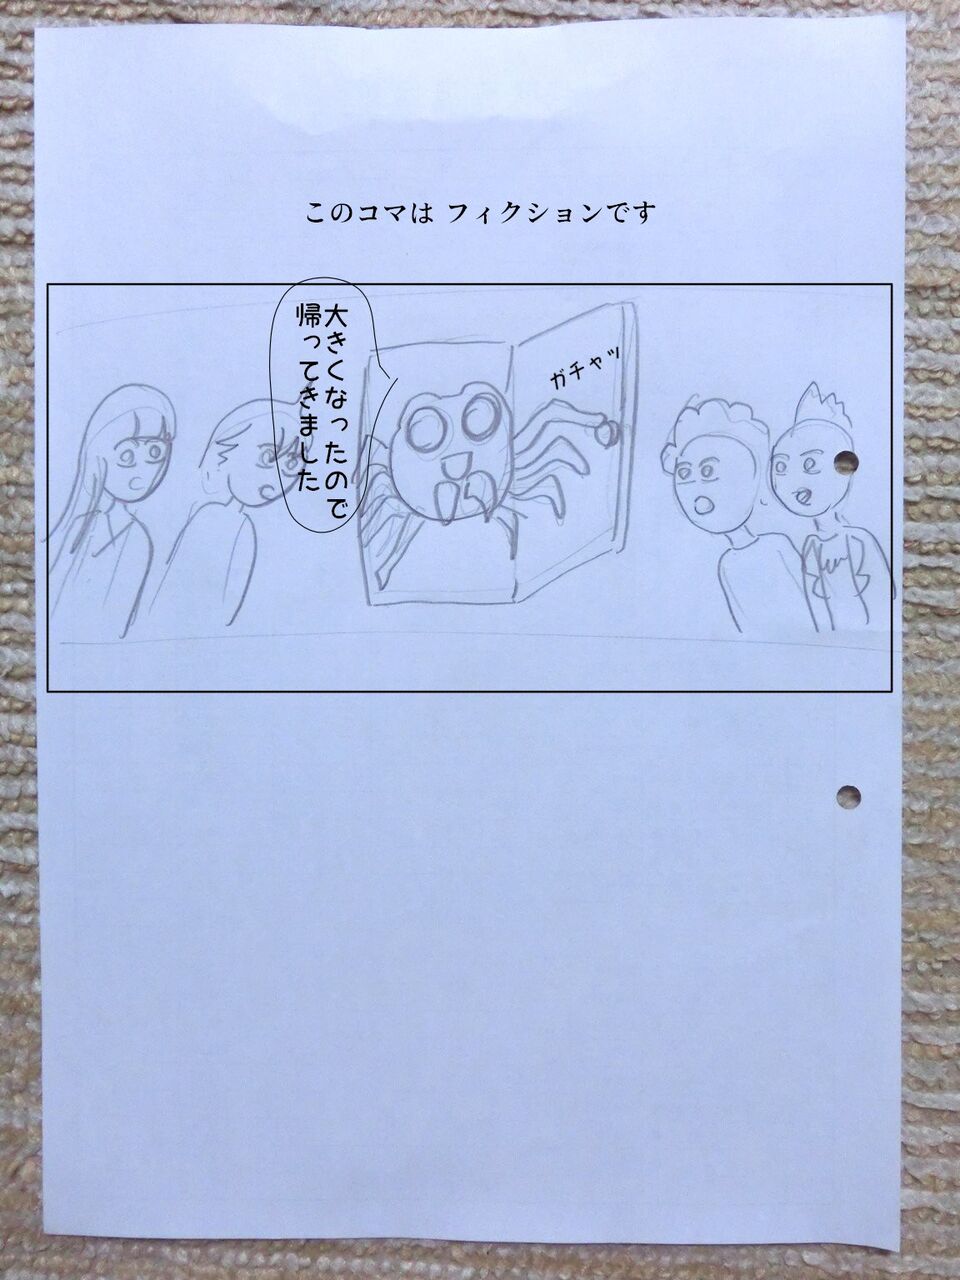 このコマは フィクションです
大きくなったので
帰ってきました
ガチャッ